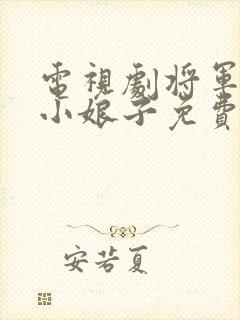 電視劇將軍
小娘子免費
安若夏